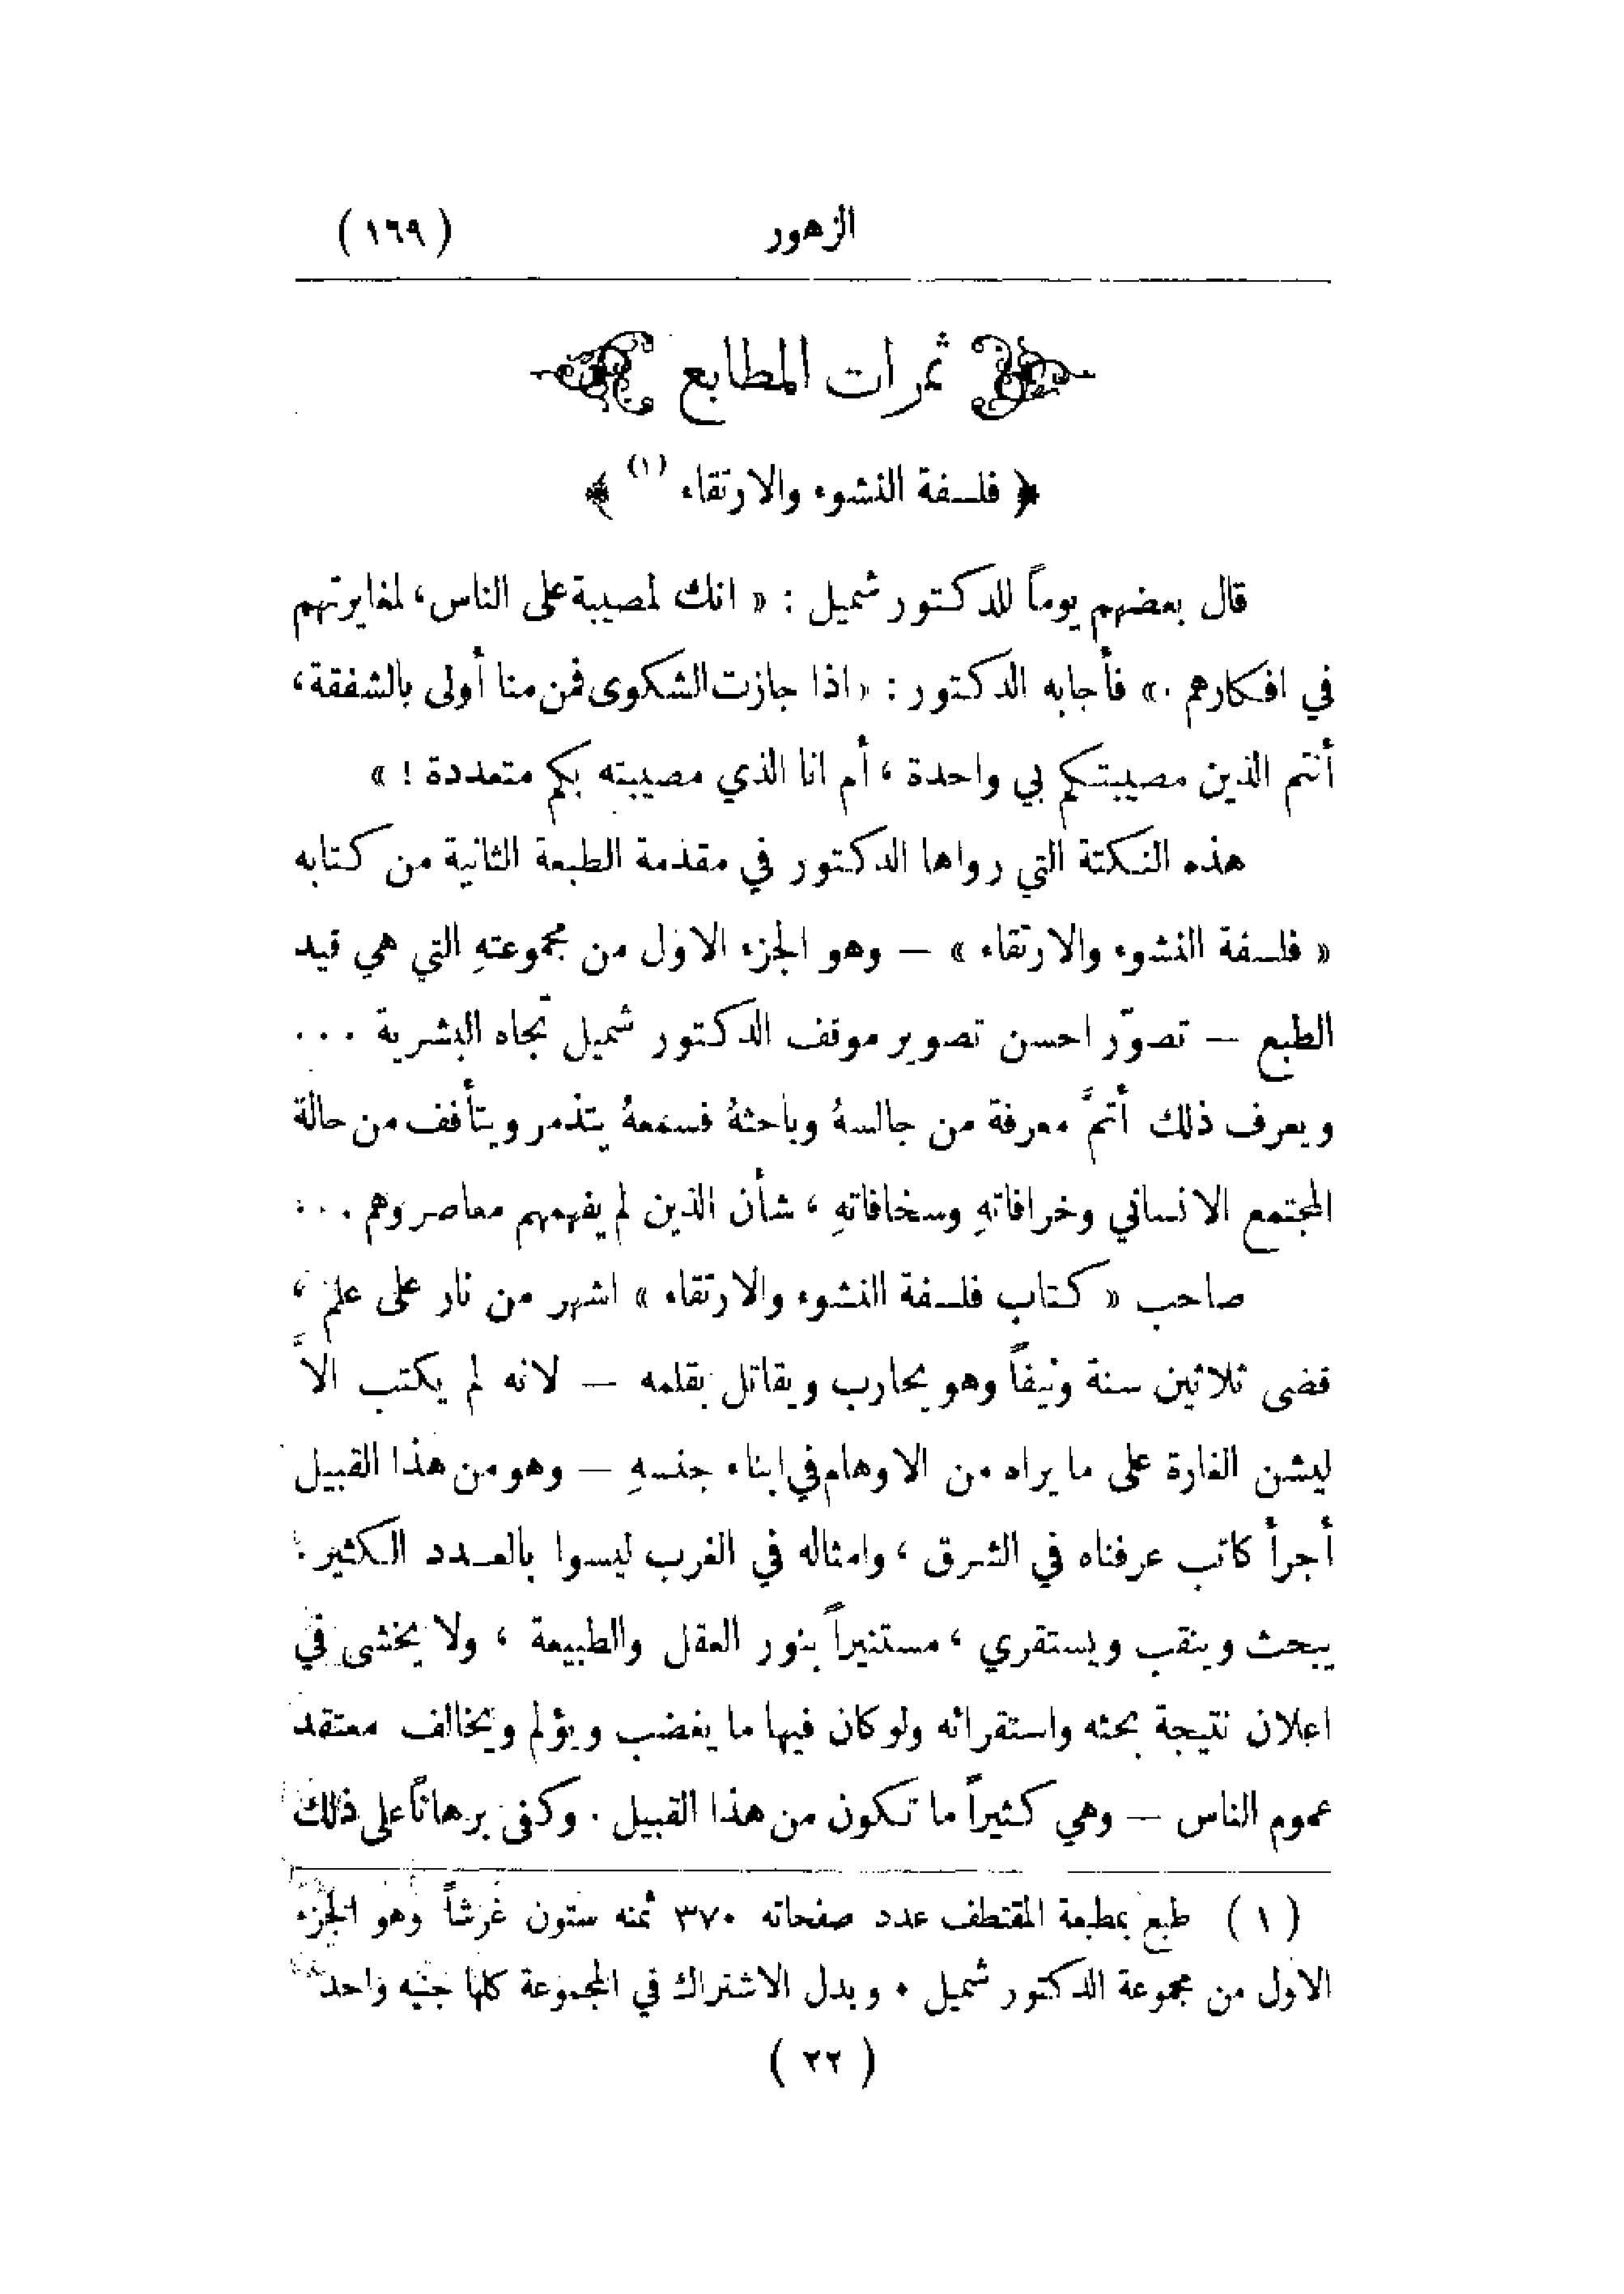 الزهور (١٦٩)
ثمرات المطابع
﴿ فلسفة النشوء والارتقاء (١) ﴾
قال بعضهم يوماً للدكتور شميل : « انك لمصيبة على الناس، لمغايرتهم
في افكارهم . » فأجابه الدكتور : « اذا جازت الشكوى فمن منا أولى بالشفقة،
أنتم الذين مصيبتكم بي واحدة ، أم انا الذي مصيبته بكم متعددة ! »
هذه النكتة التي رواها الدكتور في مقدمة الطبعة الثانية من كتابه
« فلسفة النشوء والارتقاء » — وهو الجزء الاول من مجموعتهِ التي هي قيد
الطبع — تصوّر احسن تصوير موقف الدكتور شميل تجاه البشرية ...
ويعرف ذلك أتمَّ معرفة من جالسهُ وباحثهُ فسمعهُ يتذمر ويتأفف من حالة
المجتمع الانساني وخرافاتهِ وسخافاتهِ ، شأن الذين لم يفهمهم معاصروهم ...
صاحب « كتاب فلسفة النشوء والارتقاء » اشهر من نار على علم ،
قضى ثلاثين سنة ونيفاً وهو يحارب ويقاتل بقلمه — لانه لم يكتب الاَّ
ليشن الغارة على ما يراه من الاوهام في ابناء جنسهِ — وهو من هذا القبيل
أجرأ كاتب عرفناه في الشرق ، وامثاله في الغرب ليسوا بالعدد الكثير.
يبحث وينقب ويستقري ، مستنيراً بنور العقل والطبيعة ، ولا يخشى في
اعلان نتيجة بحثه واستقرائه ولو كان فيها ما يغضب ويؤلم ويخالف معتقد
عموم الناس — وهي كثيراً ما تكون من هذا القبيل . وكفى برهاناً على ذلك
(١) طبع بمطبعة المقتطف عدد صفحاته ٣٧٠ ثمنه ستون غرشاً وهو الجزء
الاول من مجموعة الدكتور شميل . وبدل الاشتراك في المجموعة كلها جنيه واحد
(٢٢)